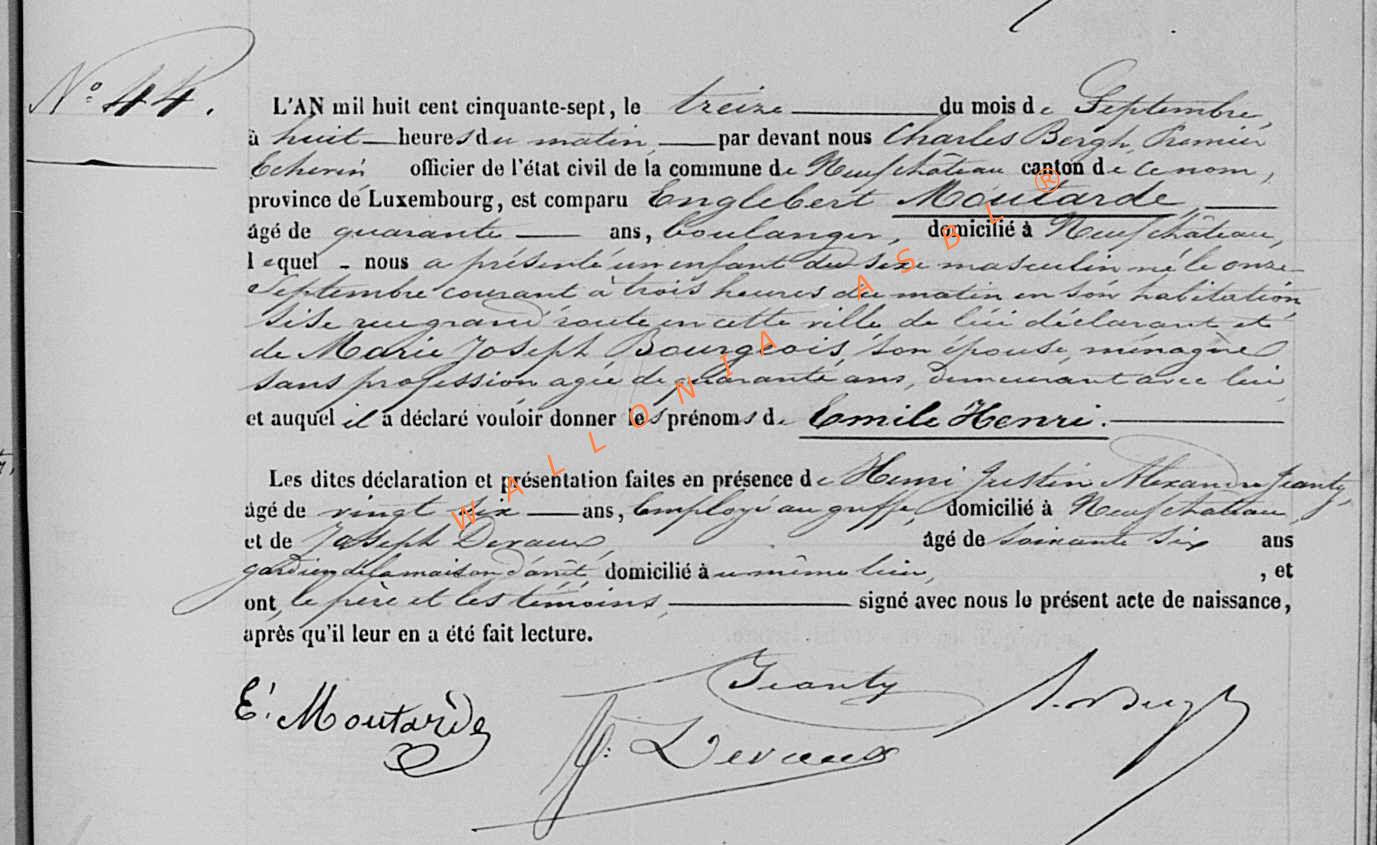 N° 44.
L'AN mil huit cent cinquante-sept, le treize du mois de Septembre,
à huit heures du matin, par devant nous Charles Bergh, Premier
Echevin officier de l'état civil de la commune de Neufchâteau canton de ce nom,
province de Luxembourg, est comparu Englebert Moutarde,
âgé de quarante ans, boulanger, domicilié à Neufchâteau,
lequel nous a présenté un enfant du sexe masculin né le onze
Septembre courant à trois heures du matin en son habitation
sise rue grand'route en cette ville de lui déclarant et
de Marie Joseph Bourgeois, son épouse, ménagère
sans profession agée de quarante ans, demeurant avec lui
et auquel il a déclaré vouloir donner les prénoms de Emile Henri.
Les dites déclaration et présentation faites en présence de Henri Justin Alexandre Jeanty,
âgé de vingt six ans, Employé au greffe, domicilié à Neufchateau
et de Joseph Devaux, âgé de soixante six ans
gardien de la maison d'arrêt, domicilié au même lieu, , et
ont, le père et les témoins, signé avec nous le présent acte de naissance,
après qu'il leur en a été fait lecture.
Jeanty
E. Moutarde
J: Devaux
WALLONIA ASBL ®